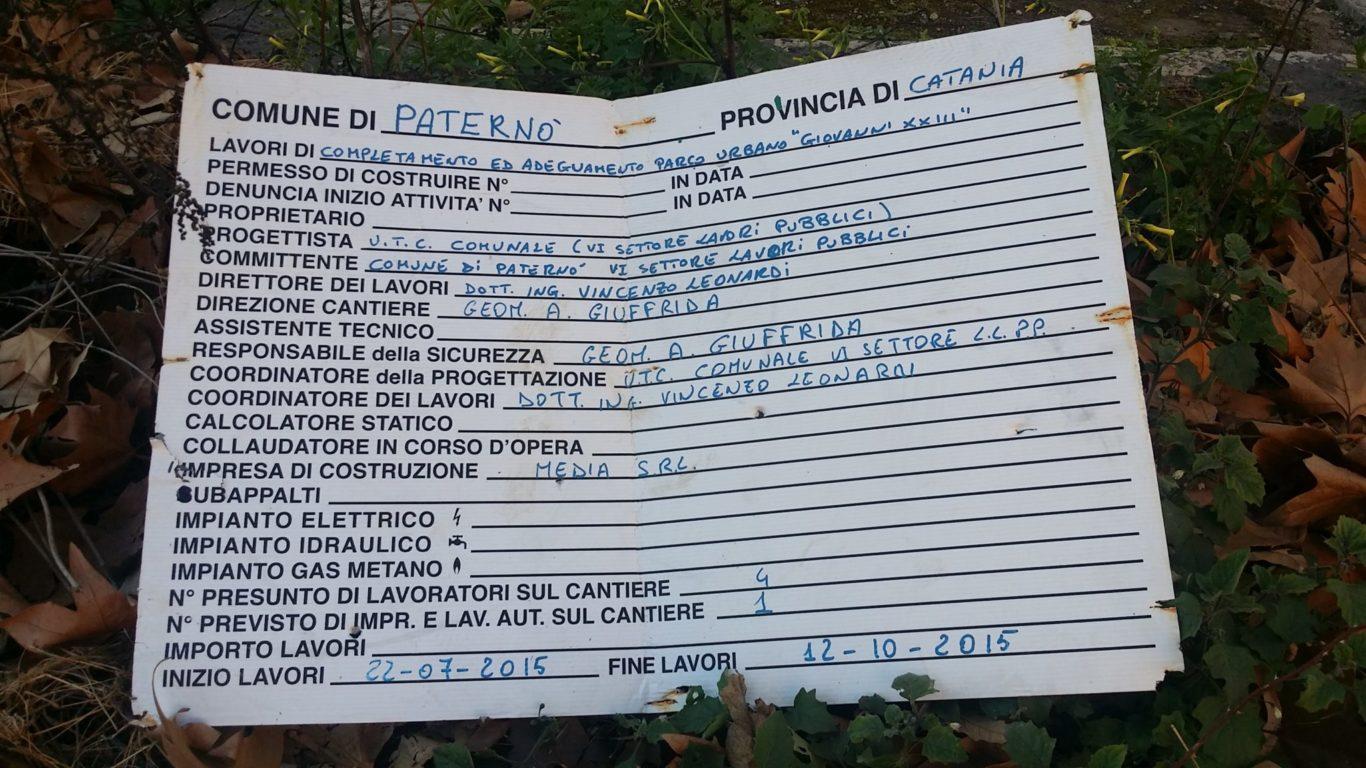 COMUNE DI PATERNO' PROVINCIA DI CATANIA
LAVORI DI COMPLETAMENTO ED ADEGUAMENTO PARCO URBANO "GIOVANNI XXIII"
PERMESSO DI COSTRUIRE N° IN DATA
DENUNCIA INIZIO ATTIVITA' N° IN DATA
PROPRIETARIO
PROGETTISTA U.T.C. COMUNALE (VI SETTORE LAVORI PUBBLICI)
COMMITTENTE COMUNE DI PATERNO' VI SETTORE LAVORI PUBBLICI
DIRETTORE DEI LAVORI DOTT. ING. VINCENZO LEONARDI
DIREZIONE CANTIERE GEOM. A. GIUFFRIDA
ASSISTENTE TECNICO
RESPONSABILE della SICUREZZA GEOM. A. GIUFFRIDA
COORDINATORE della PROGETTAZIONE U.T.C. COMUNALE VI SETTORE L.L. P.P.
COORDINATORE DEI LAVORI DOTT. ING. VINCENZO LEONARDI
CALCOLATORE STATICO
COLLAUDATORE IN CORSO D'OPERA
IMPRESA DI COSTRUZIONE MEDIA S.R.L.
SUBAPPALTI
IMPIANTO ELETTRICO
IMPIANTO IDRAULICO
IMPIANTO GAS METANO
N° PRESUNTO DI LAVORATORI SUL CANTIERE 4
N° PREVISTO DI IMPR. E LAV. AUT. SUL CANTIERE 1
IMPORTO LAVORI
INIZIO LAVORI 22-07-2015 FINE LAVORI 12-10-2015